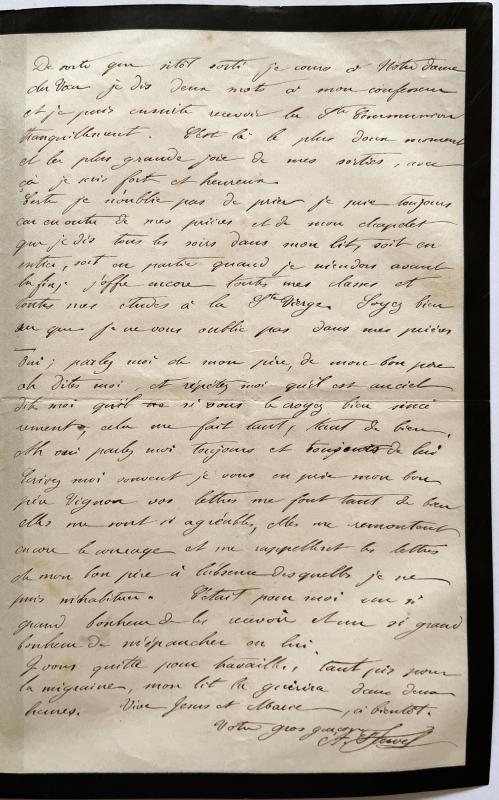 De sorte que sitôt sorti je cours à Notre Dame
du Vœu je dis deux mots à mon confesseur
et je puis ensuite recevoir la Ste Communion
tranquillement. C'est là le plus doux moment
et la plus grande joie de mes sorties, avec
çà je suis fort et heureux
je n'oublie pas de prier je prie toujours
car en outre de mes prières et de mon chapelet
que je dis tous les soirs dans mon lit, soit en
entier, soit en partie quand je m'endors avant
la fin, j'offre encore toutes mes classes et
toutes mes études à la Ste Vierge. Soyez bien
sûr que je ne vous oublie pas dans mes prières
Oui; parlez moi de mon père, de mon bon père
oh dites moi, et répétez moi qu'il est au ciel
dites moi qu'il si vous le croyez bien sincè
rement, cela me fait tant, tant de bien.
Ah oui parlez moi toujours et toujours de lui
Ecrivez moi souvent je vous en prie mon bon
père Vignon vos lettres me font tant de bien
elles me sont si agréables, elles me remontent
encore le courage et me rappellent les lettres
de mon bon père à l'absence desquelles je ne
puis m'habituer. C'était pour moi un si
grand bonheur de les recevoir et un si grand
bonheur de m'épancher en lui.
Je vous quitte pour travailler, tant pis pour
la migraine, mon lit la guérira dans deux
heures. Vive Jésus et Marie, à bientôt.
Votre gros garçon